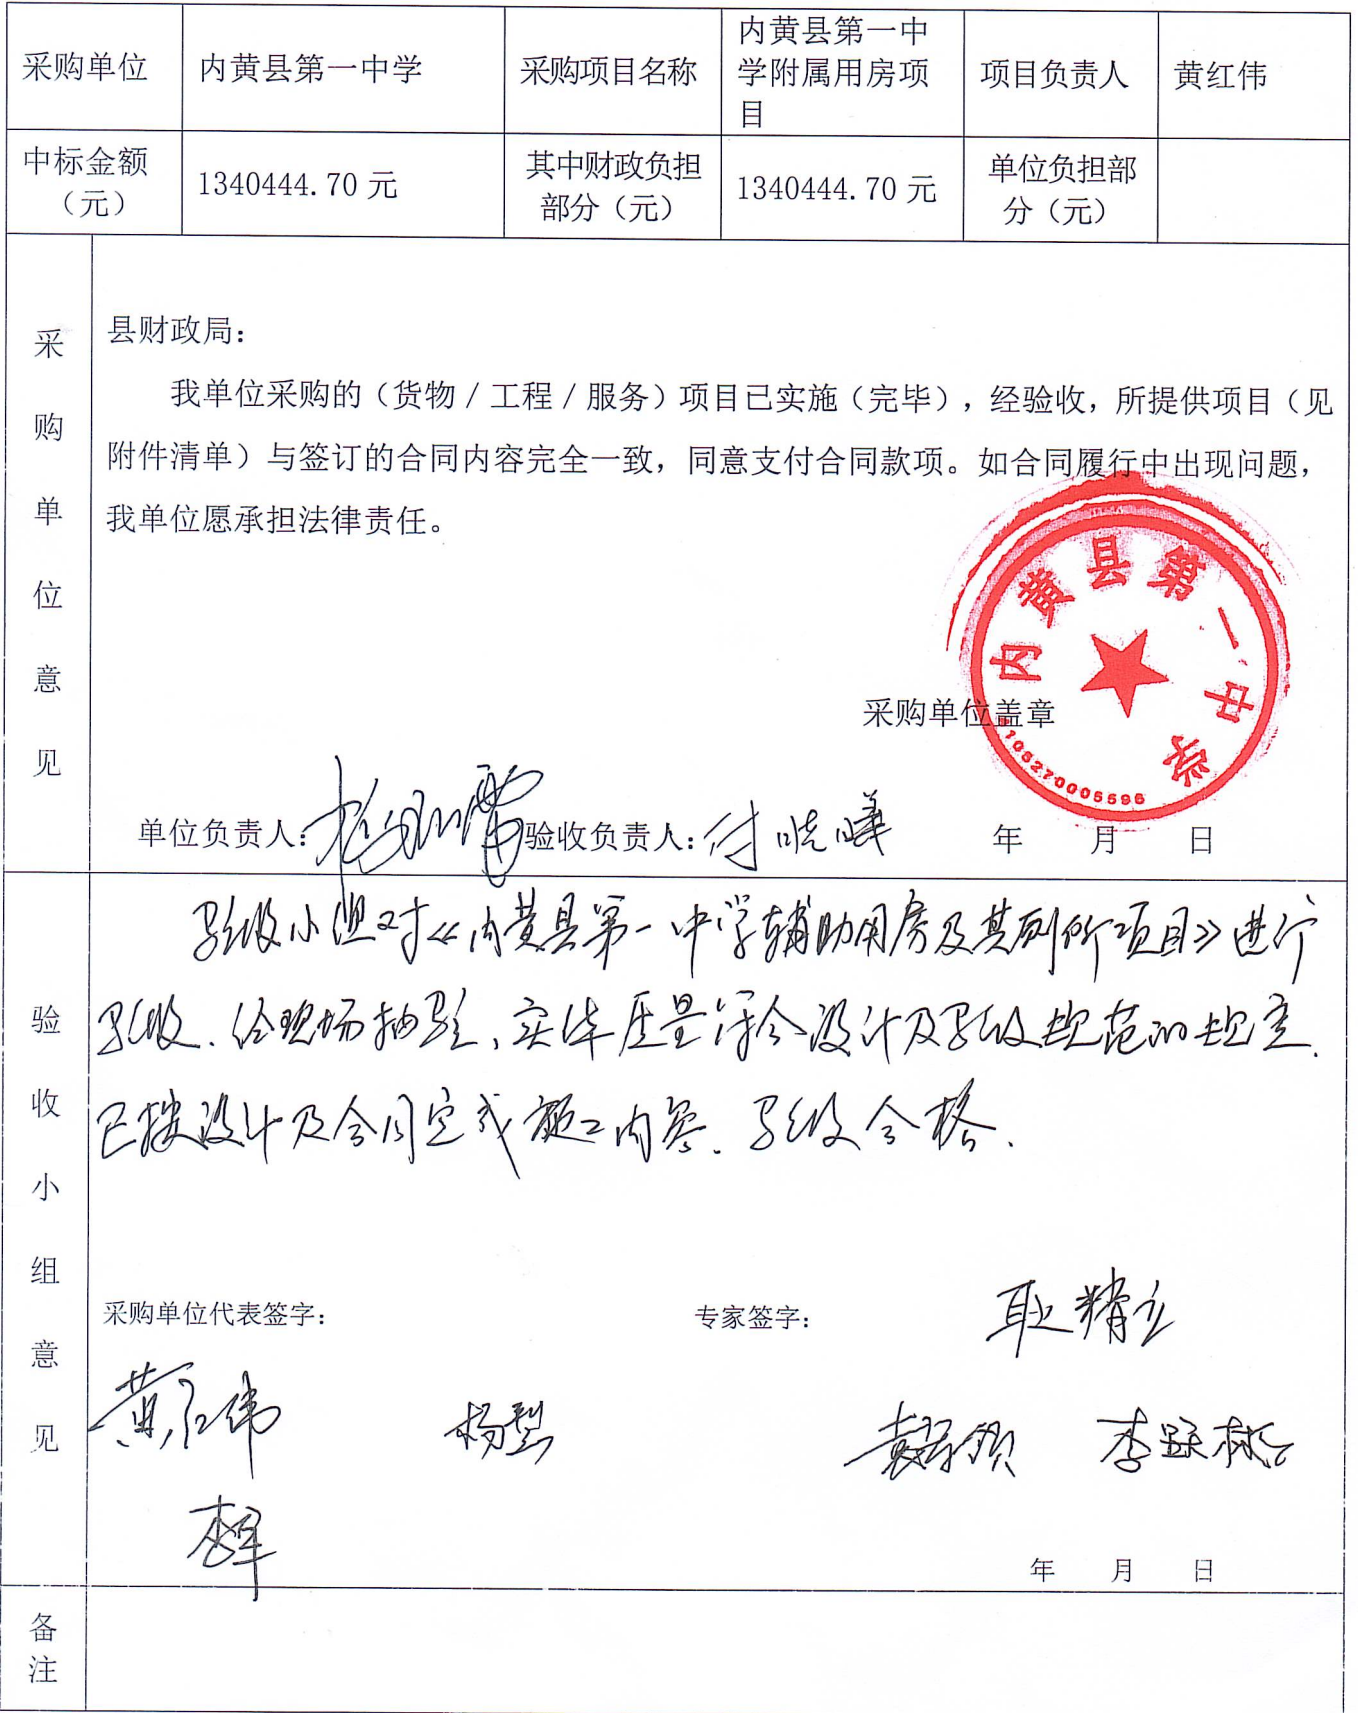 采购单位 内黄县第一中学 采购项目名称 内黄县第一中学附属用房项目 项目负责人 黄红伟
中标金额（元） 1340444.70 元 其中财政负担部分（元） 1340444.70 元 单位负担部分（元）
采购单位意见
县财政局：
我单位采购的（货物／工程／服务）项目已实施（完毕），经验收，所提供项目（见
附件清单）与签订的合同内容完全一致，同意支付合同款项。如合同履行中出现问题，
我单位愿承担法律责任。
内黄县第一中学
采购单位盖章
单位负责人： 验收负责人：付晓曦 年 月 日
验收小组意见
验收小组对《内黄县第一中学辅助用房及其厕所项目》进行
验收．经现场抽验，实体质量符合设计及验收规范的规定．
已按设计及合同完成施工内容．验收合格．
采购单位代表签字： 专家签字： 耿精立
黄红伟
李军
年 月 日
备注